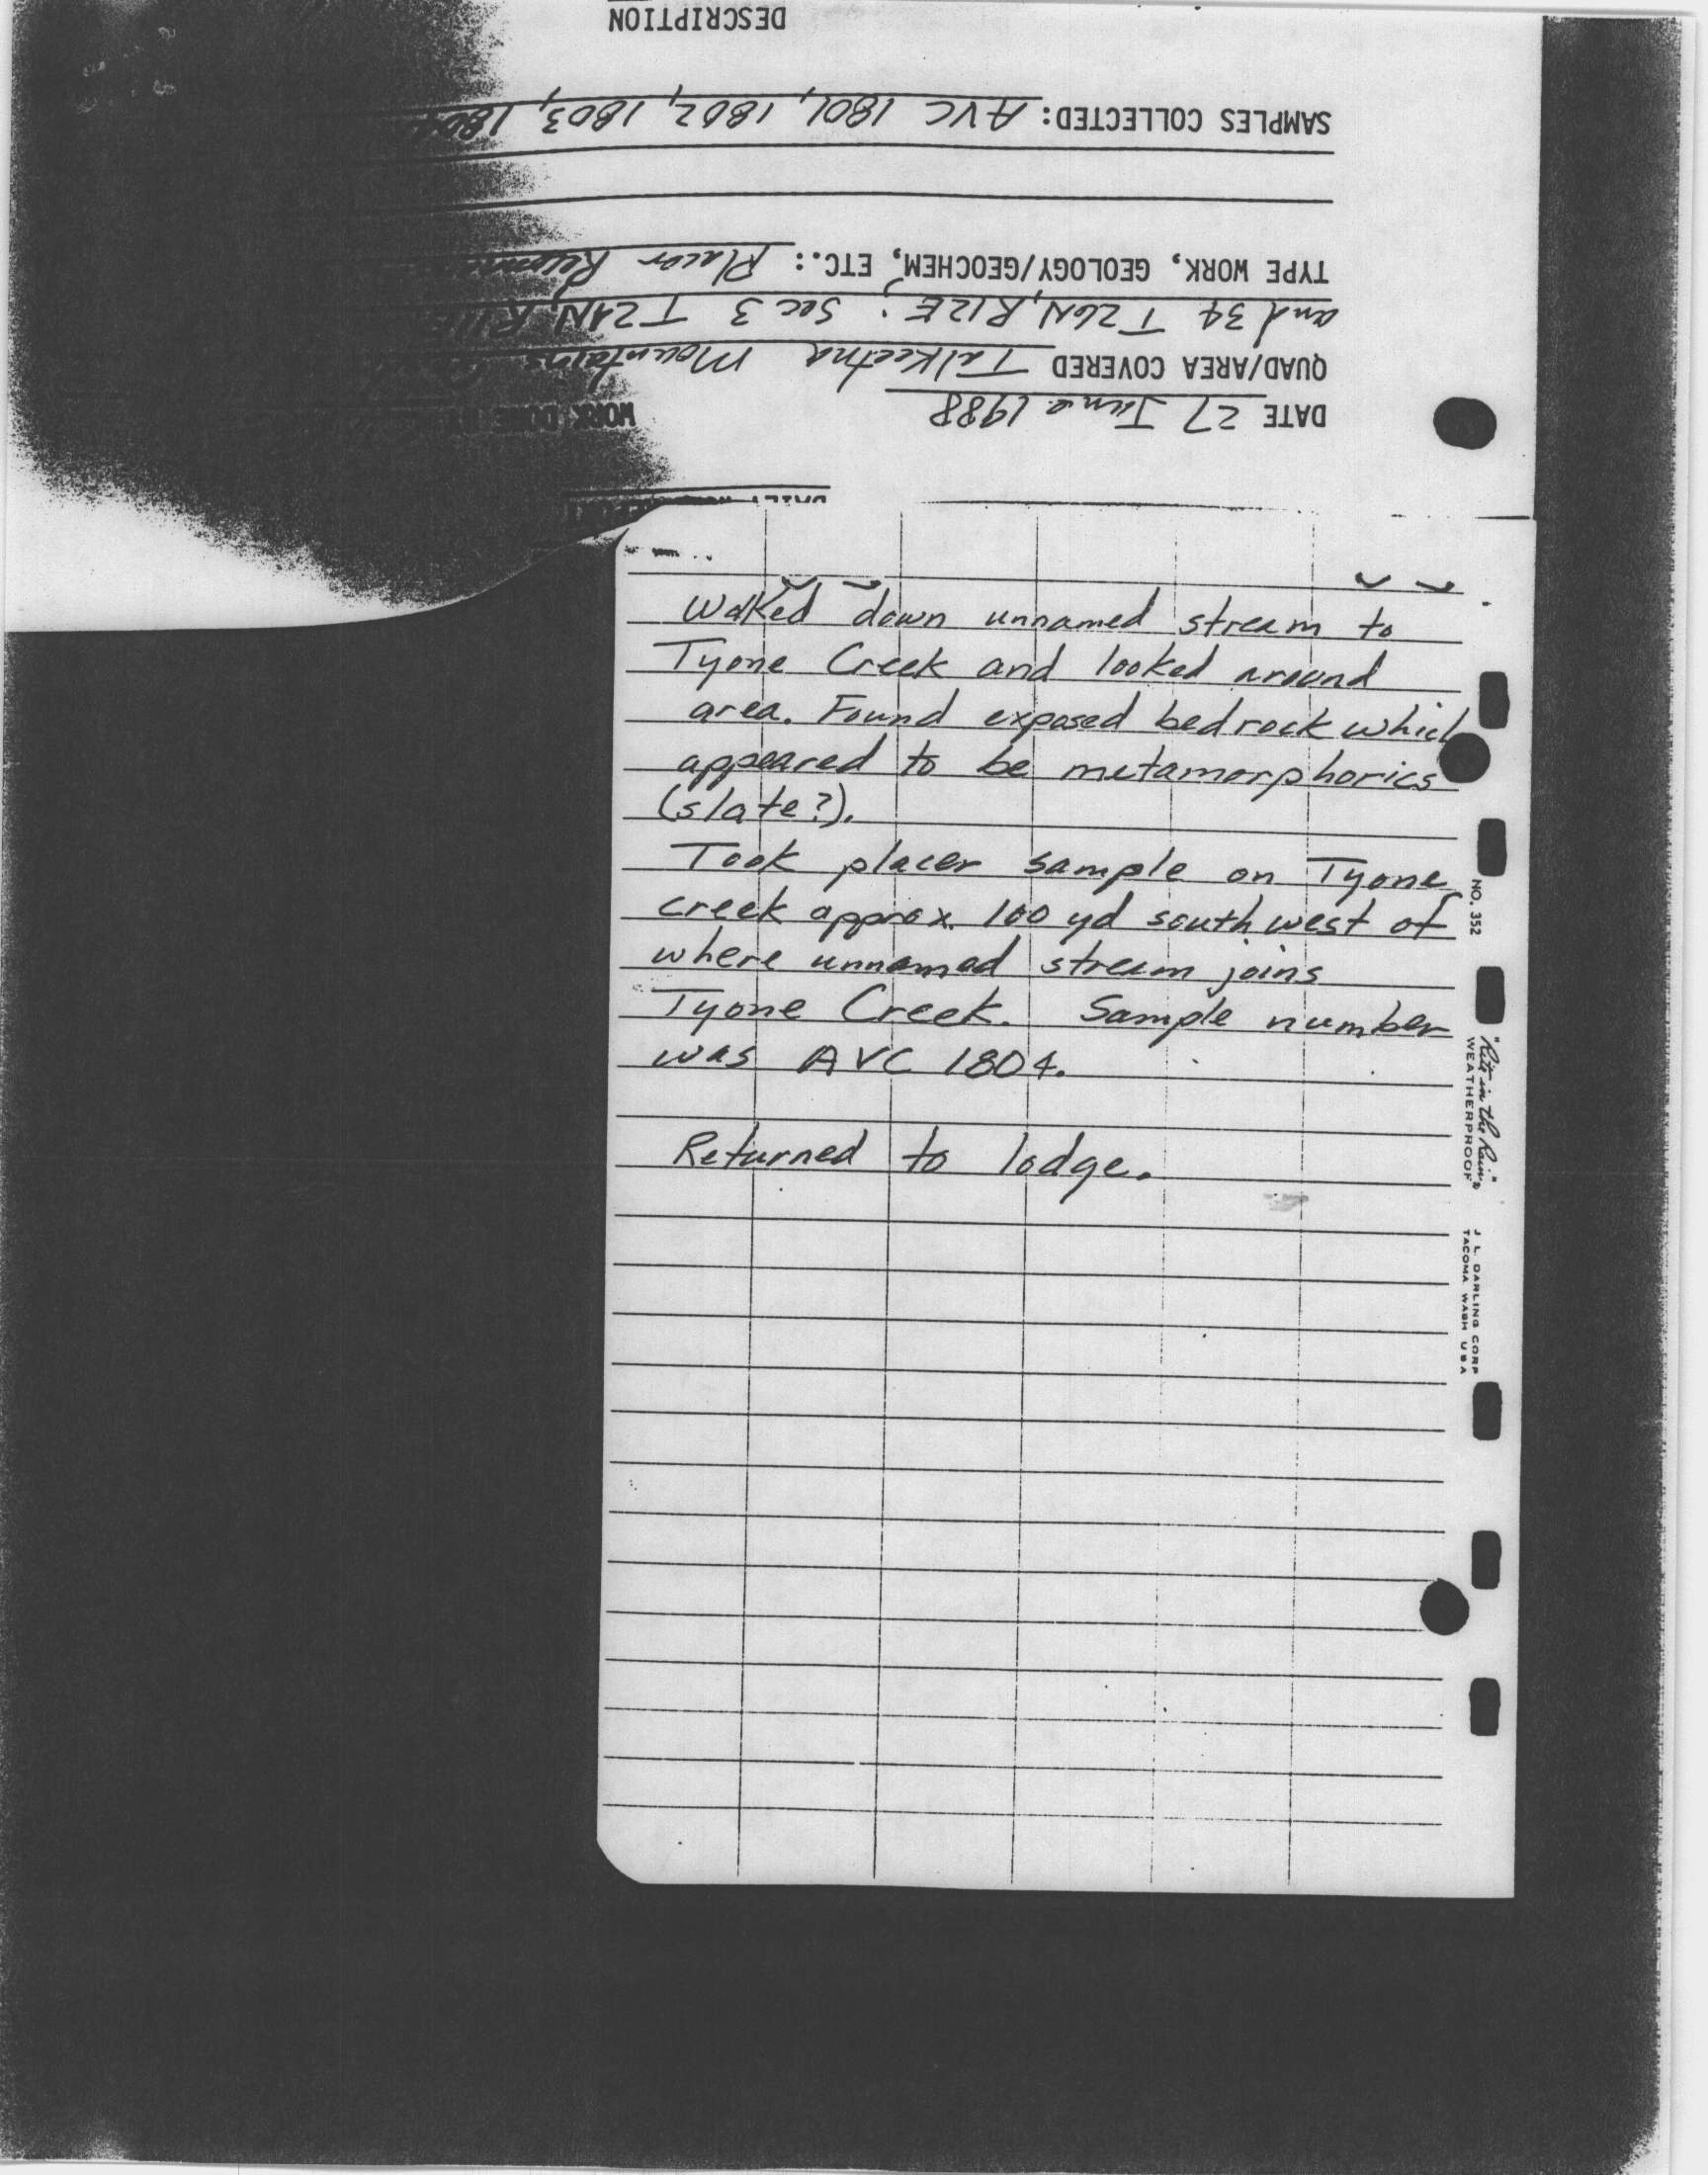 Walked down unnamed stream to
Tyone Creek and looked around
area. Found exposed bedrock which
appeared to be metamorphorics
(slate?).
Took placer sample on Tyone
creek approx. 100 yd southwest of
where unnamed stream joins
Tyone Creek. Sample number
was AVC 1804.
Returned to lodge.
NO. 352
"Rite in the Rain"
WEATHERPROOF
J L DARLING CORP
TACOMA WASH USA
DATE 27 June 1988
WORK DONE BY
QUAD/AREA COVERED Talkeetna Mountains
and 34 T26N, R12E; Sec 3
TYPE WORK, GEOLOGY/GEOCHEM, ETC.: Placer
SAMPLES COLLECTED: AVC 1801, 1802, 1803,
DESCRIPTION